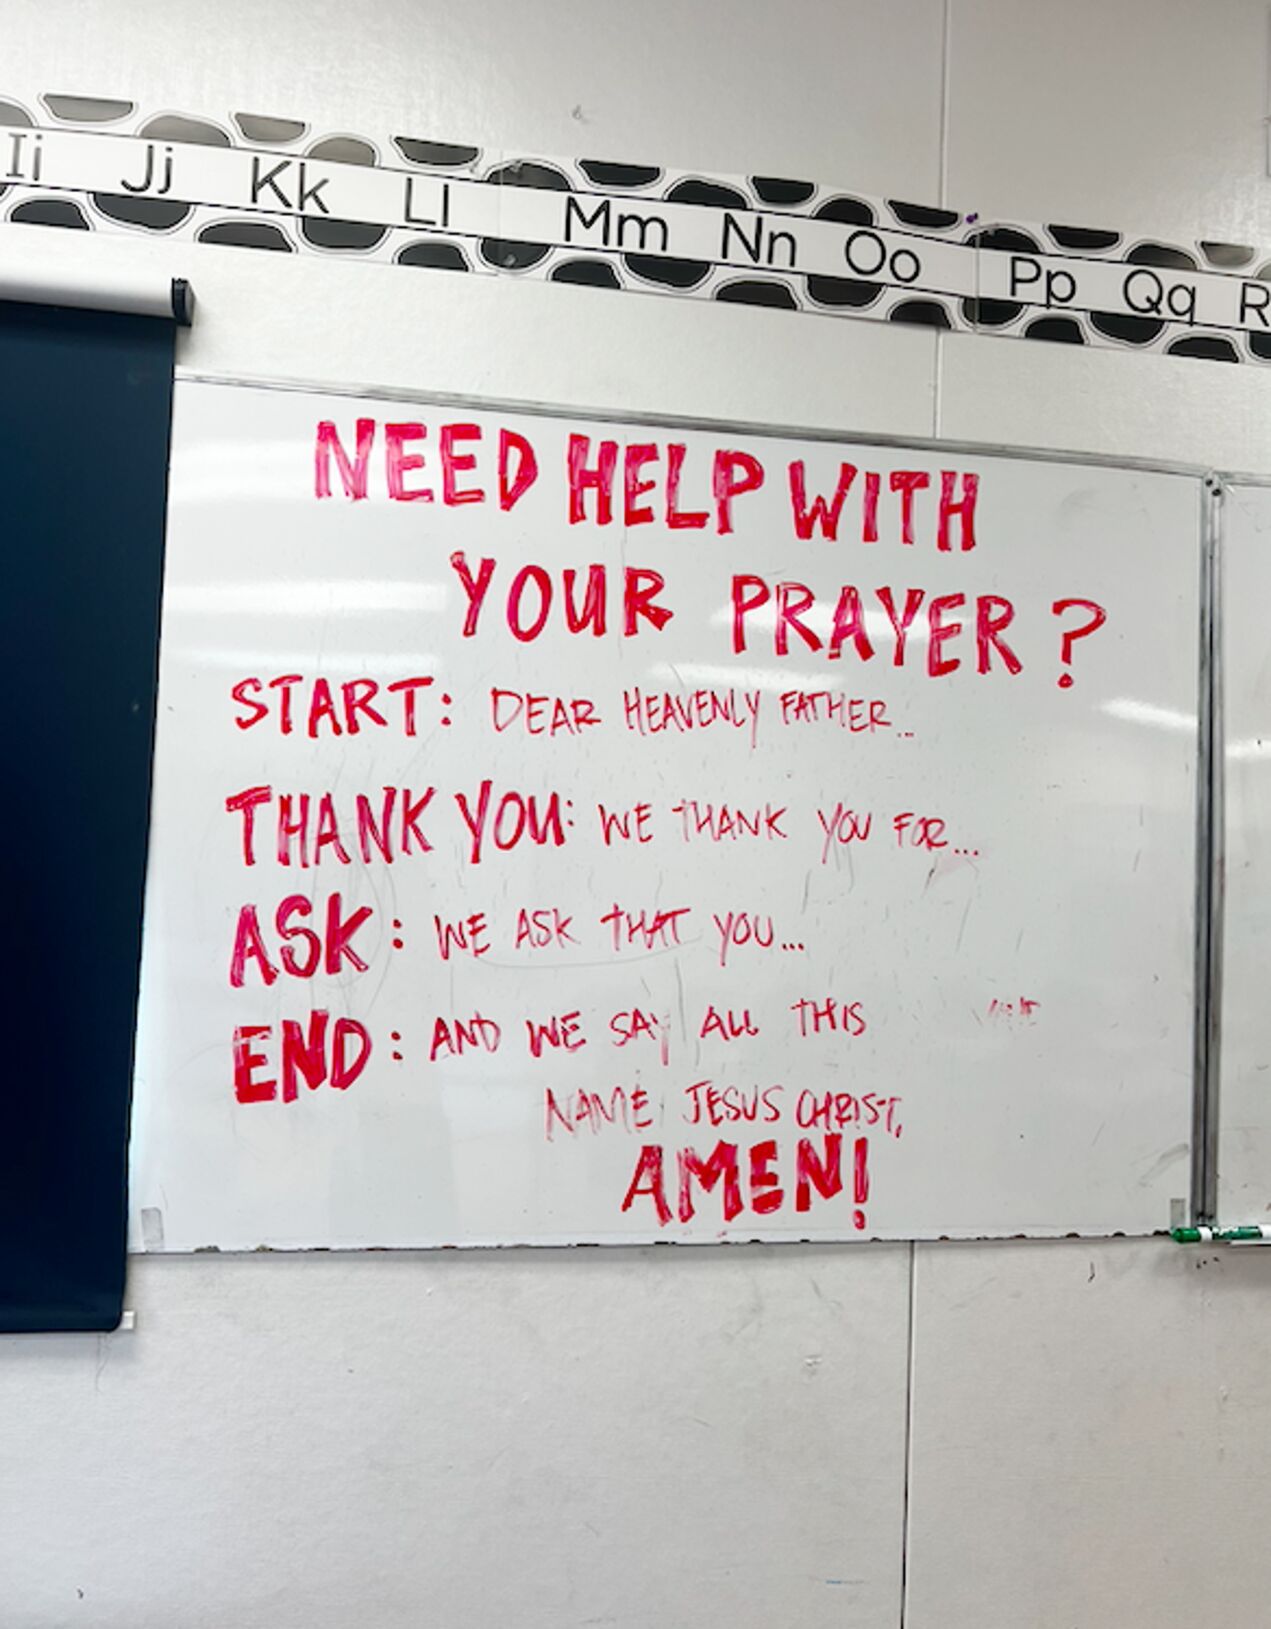 Ii Jj Kk Ll Mm Nn Oo Pp Qq R
NEED HELP WITH
YOUR PRAYER?
START: DEAR HEAVENLY FATHER...
THANK YOU: WE THANK YOU FOR...
ASK: WE ASK THAT YOU...
END: AND WE SAY ALL THIS
NAME JESUS CHRIST,
AMEN!